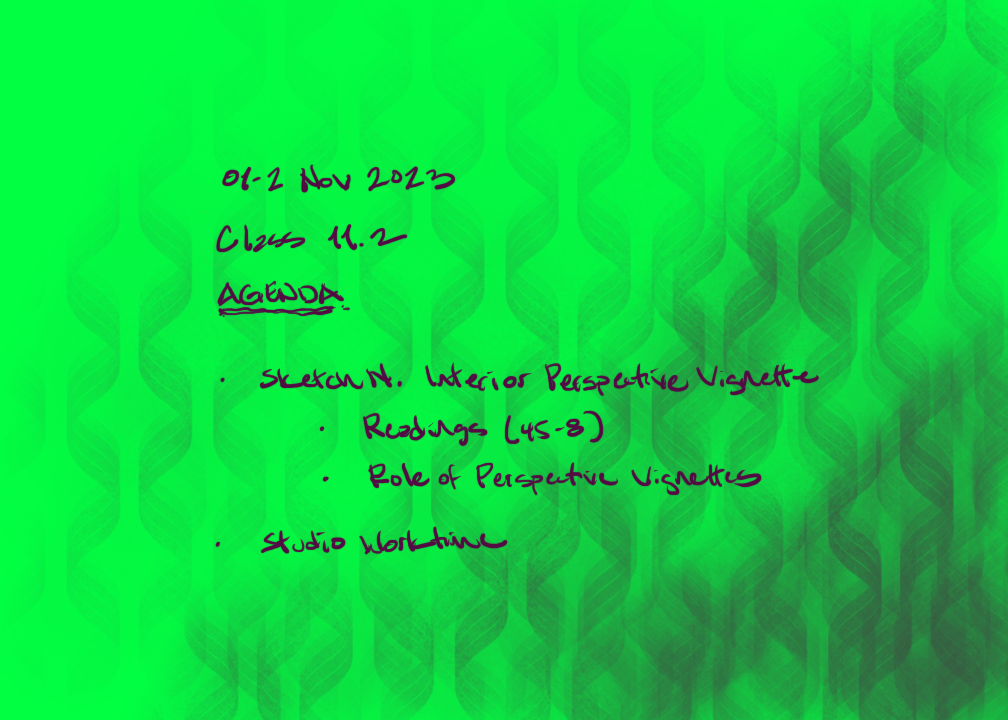 01-2 Nov 2023
Class 11.2
AGENDA
• Sketch N. Interior Perspective Vignette
• Readings (45-8)
• Role of Perspective Vignettes
• Studio Worktime